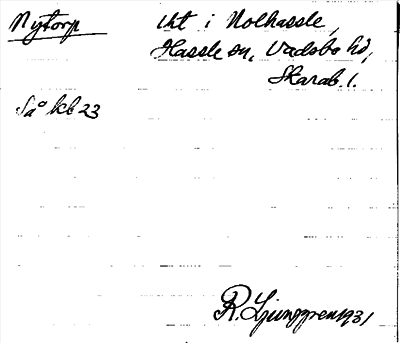 Nytorp ukt i Nolhassle,
Hassle sn, Vadsbo hd,
Skarab. l.
Så kb 23
R. Ljunggren 1931